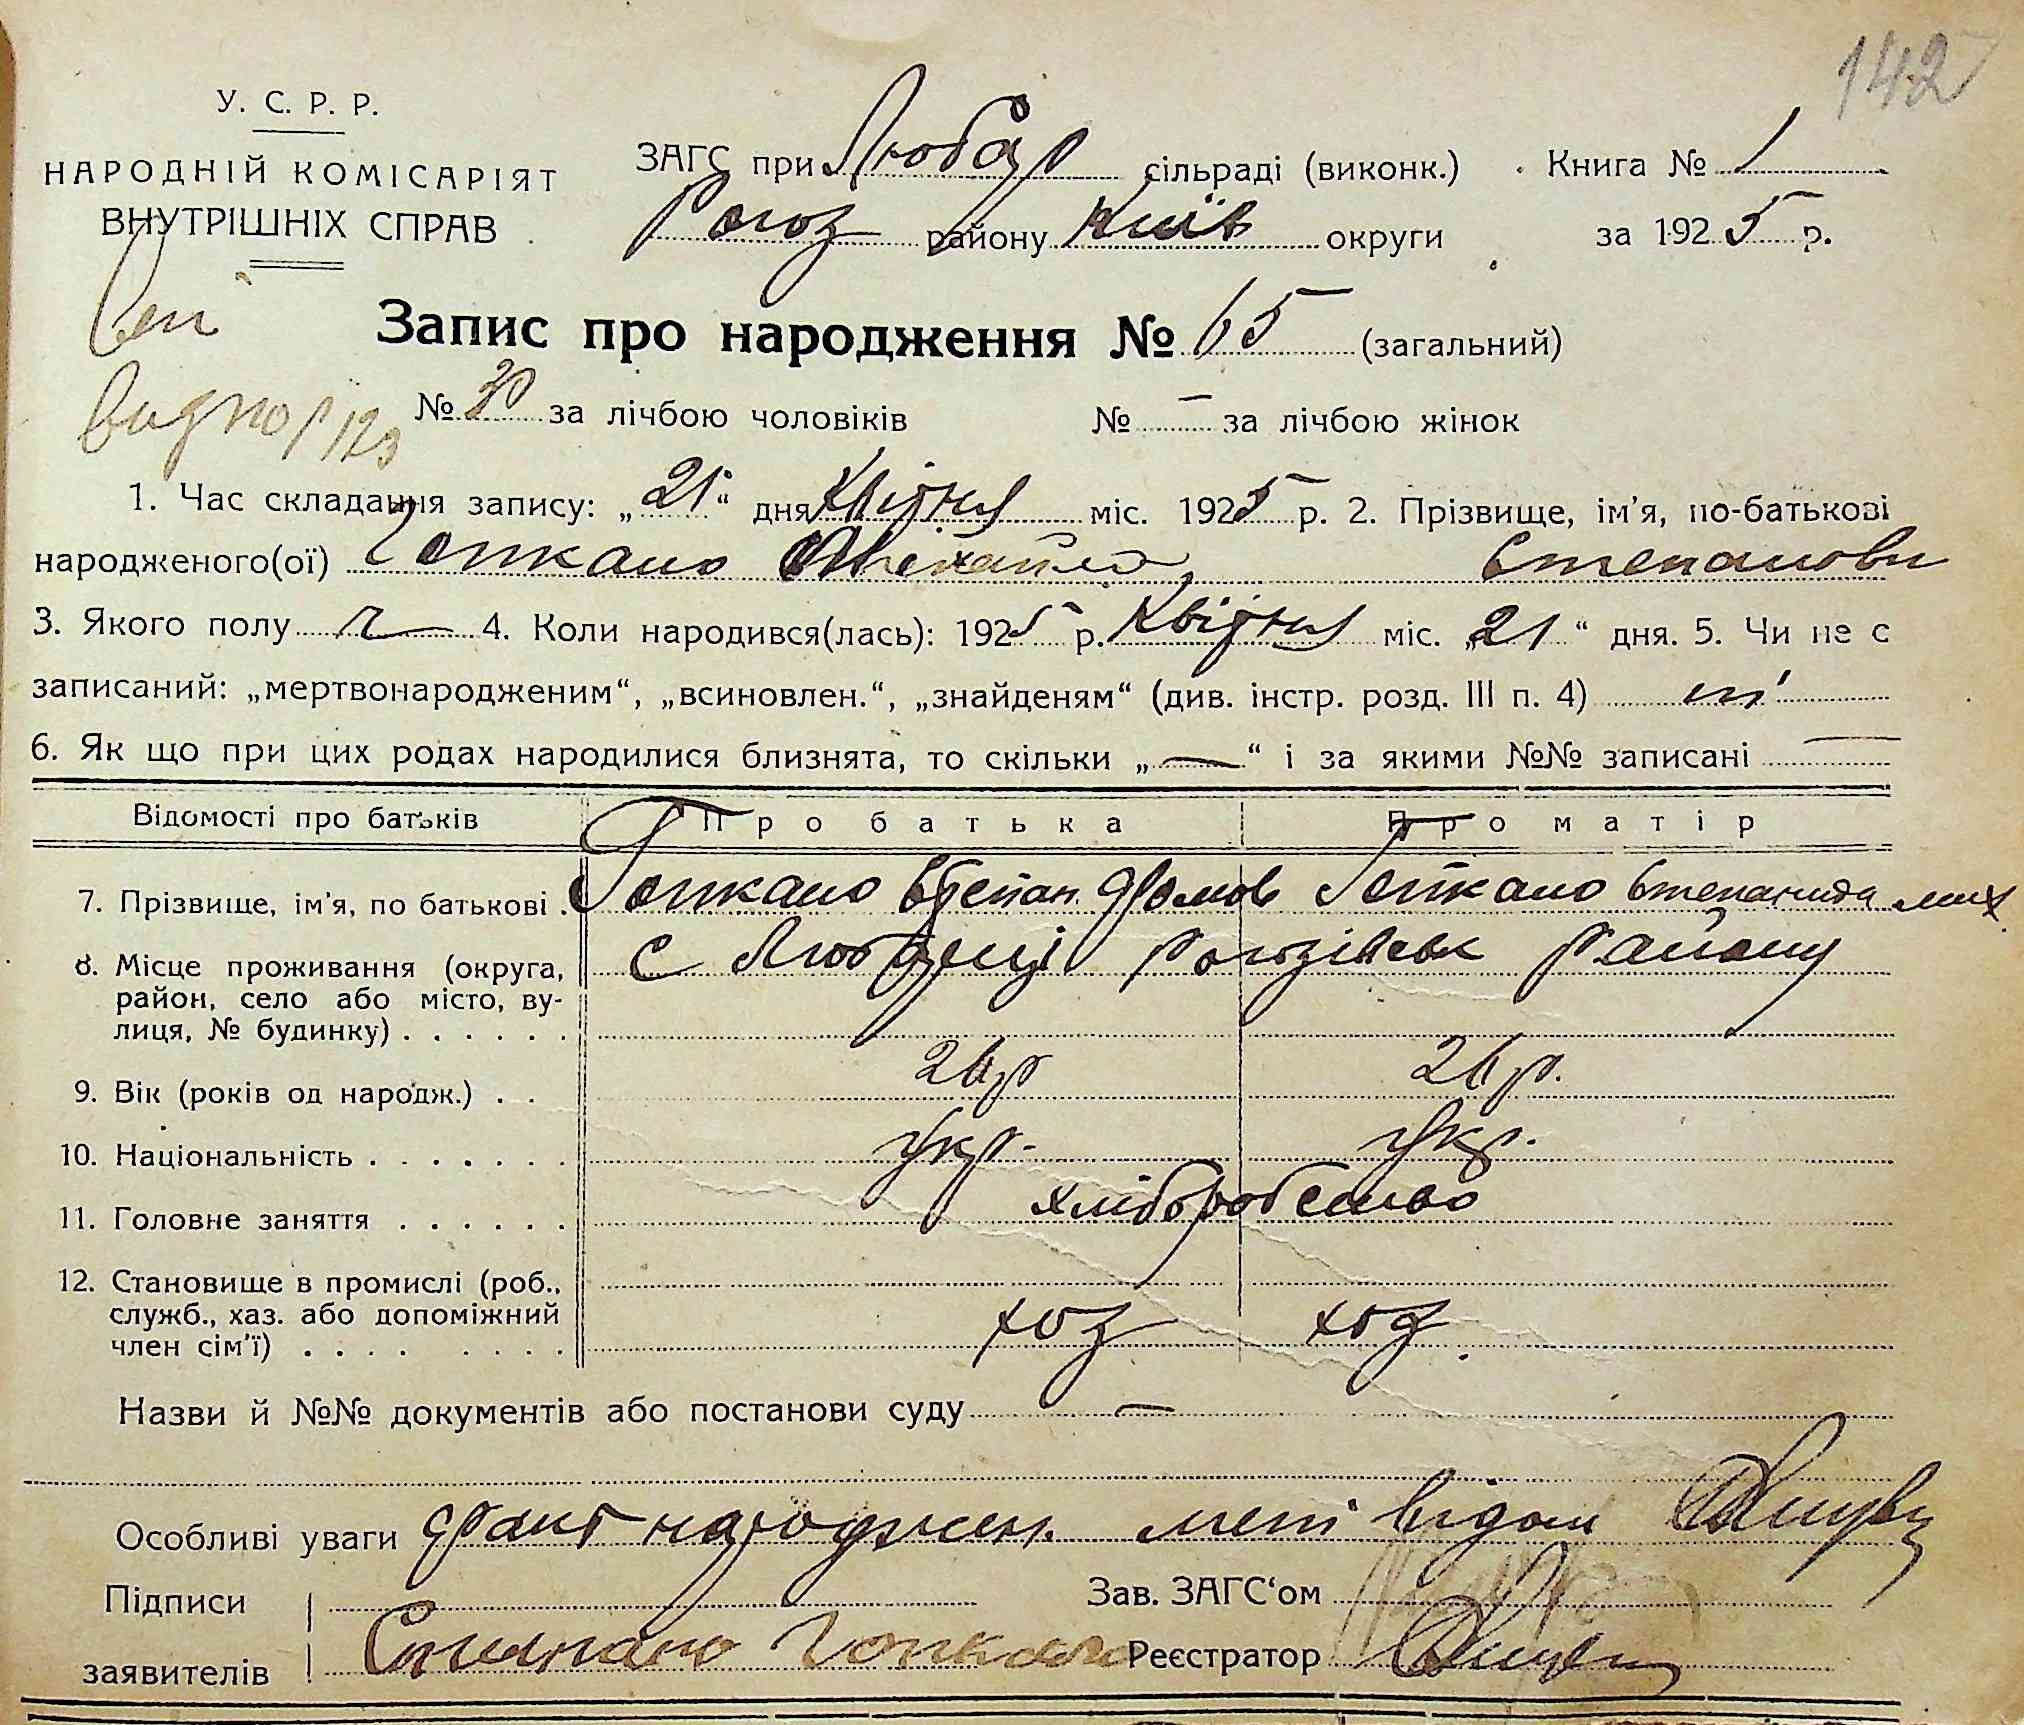 142
У. С. Р. Р.
НАРОДНІЙ КОМІСАРІЯТ
ВНУТРІШНІХ СПРАВ
ЗАГС при Любар сільраді (виконк.) Книга № 1
Рогоз району Київ округи за 1925 р.
Запис про народження № 65 (загальний)
№ 30 за лічбою чоловіків № — за лічбою жінок
1. Час складання запису: „21“ дня Квітня міс. 1925 р. 2. Прізвище, ім'я, по-батькові
народженого(ої) Гопкало Михайло Степанови
3. Якого полу ч 4. Коли народився(лась): 1925 р. Квітня міс. „21“ дня. 5. Чи не є
записаний: „мертвонародженим“, „всиновлен.“, „знайденям“ (див. інстр. розд. III п. 4) ні
6. Як що при цих родах народилися близнята, то скільки „—“ і за якими №№ записані —
Відомості про батьків Про батька Про матір
7. Прізвище, ім'я, по батькові . Гопкало Степан Фомов Гопкало Степанида мих
8. Місце проживання (округа, С Любарці Рогозівськ Району
район, село або місто, ву-
лиця, № будинку) . . . . . .
9. Вік (років од народж.) . . 26 р 26 р.
10. Національність . . . . . . . Укр. Укр.
11. Головне заняття . . . . . . хліборобство
12. Становище в промислі (роб.,
служб., хаз. або допоміжний
член сім'ї) . . . . . . . . хоз хоз
Назви й №№ документів або постанови суду —
Особливі уваги Факт народжен. мені відом
Підписи Зав. ЗАГС‘ом
заявителів Гопкало Реєстратор